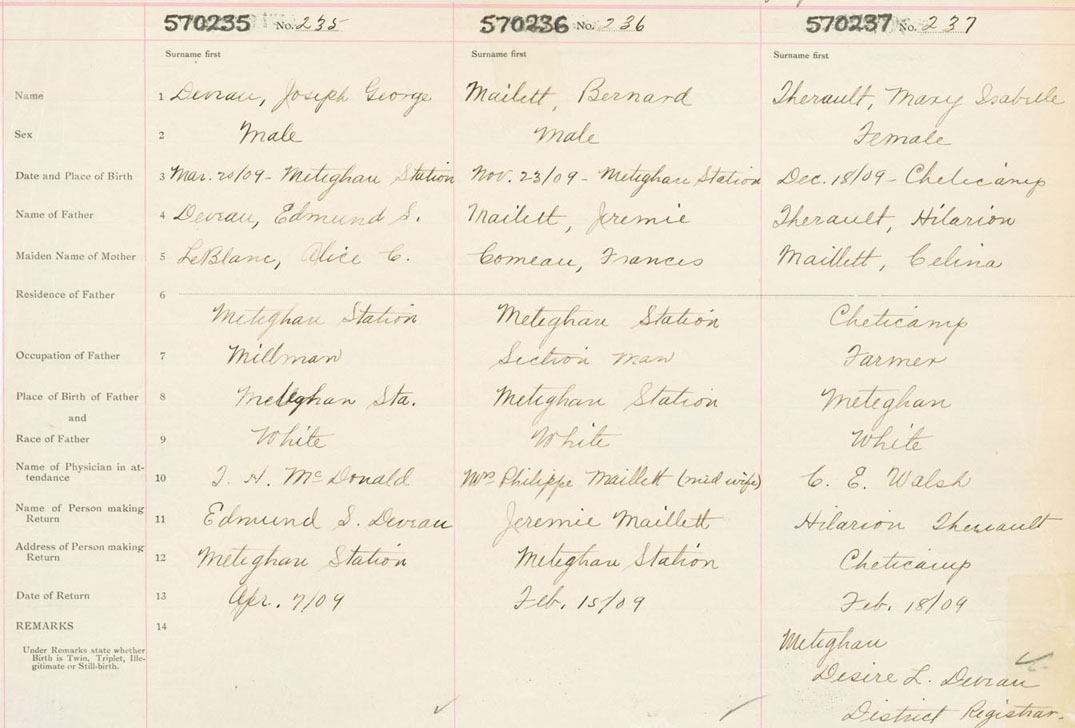 570235 No. 235 570236 No. 236 570237 No. 237
Surname first Surname first Surname first
Name 1 Deveau, Joseph George Maillett, Bernard Therault, Mary Isabelle
Sex 2 Male Male Female
Date and Place of Birth 3 Mar. 20/09 - Meteghan Station Nov. 23/09 - Meteghan Station Dec. 18/09 - Cheticamp
Name of Father 4 Deveau, Edmund S. Maillett, Jeremie Therault, Hilarion
Maiden Name of Mother 5 LeBlanc, Alice C. Comeau, Frances Maillett, Celina
Residence of Father 6
Meteghan Station Meteghan Station Cheticamp
Occupation of Father 7 Millman Section man Farmer
Place of Birth of Father 8 Meteghan Sta. Meteghan Station Meteghan
and
Race of Father 9 White White White
Name of Physician in at-
tendance 10 T. H. McDonald Mrs Philippe Maillett (mid wife) C. E. Walsh
Name of Person making
Return 11 Edmund S. Deveau Jeremie Maillett Hilarion Theriault
Address of Person making
Return 12 Meteghan Station Meteghan Station Cheticamp
Date of Return 13 Apr. 7/09 Feb. 15/09 Feb. 18/09
REMARKS 14
Under Remarks state whether
Birth is Twin, Triplet, Ille-
gitimate or Still-birth.
Meteghan
Desire L. Deveau
District Registrar.